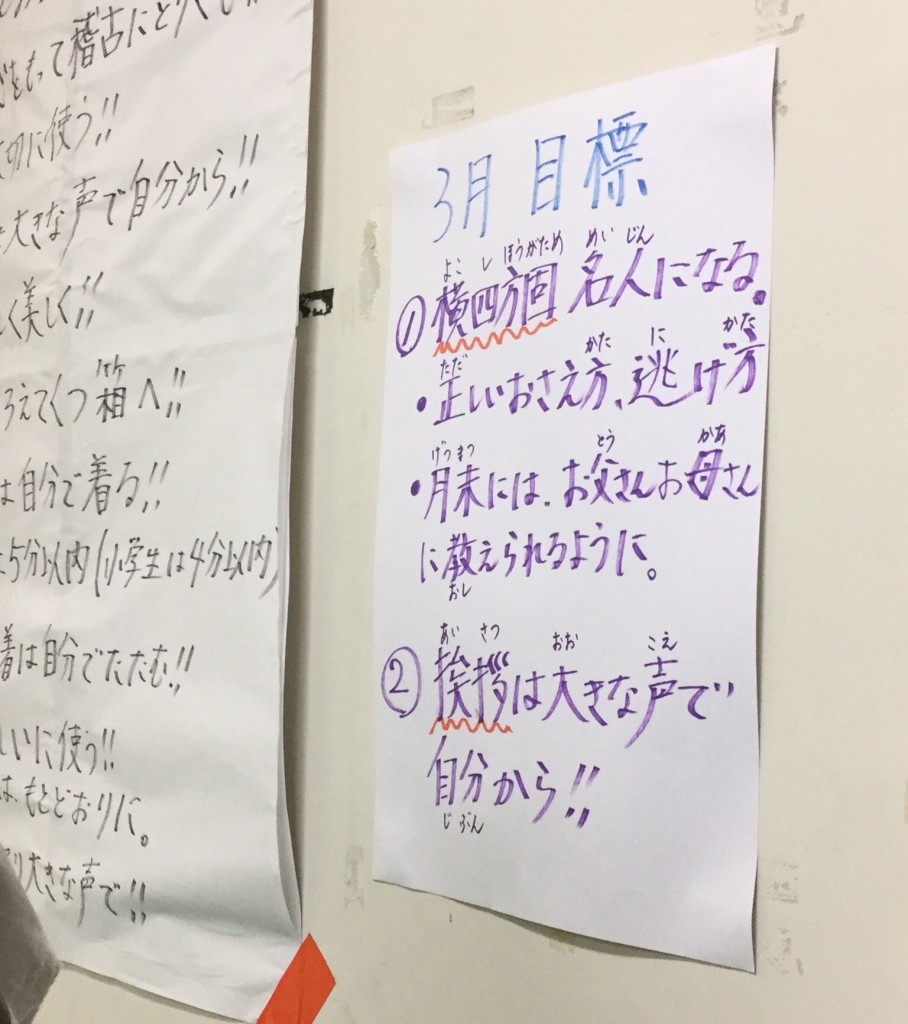 をもって稽古にと
切に使う!!
大きな声で自分から!!
く美しく!!
ろえてくつ箱へ!!
は自分で着る!!
は5分以内(小学生は4分以内)
着は自分でたたむ!!
いに使う!!
は、もとどおりに。
大きな声で!!
3月 目標
よこ し ほうがため めい じん
①横四方固 名人になる。
ただ かた に かた
・正しいおさえ方、逃げ方
げつ まつ とう かあ
・月末には、お父さんお母さん
に教えられるように。
おし
あい さつ おお こえ
②挨拶は大きな声で
自分から!!
じ ぶん